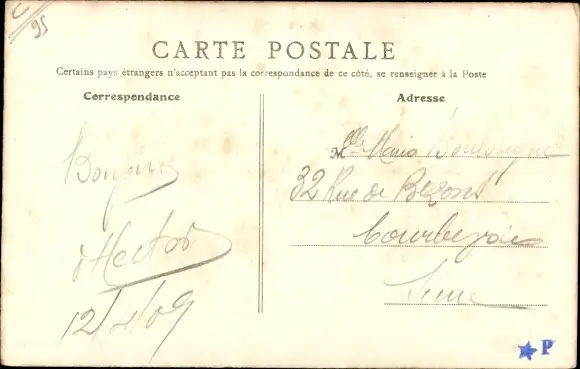 C/95
CARTE POSTALE
Certains pays étrangers n'acceptant pas la correspondance de ce côté, se renseigner à la Poste
Correspondance
Adresse
Bonjour
Hector
12/4/09
Mlle Maria
32 Rue de Bezons
Courbevoie
Seine
P